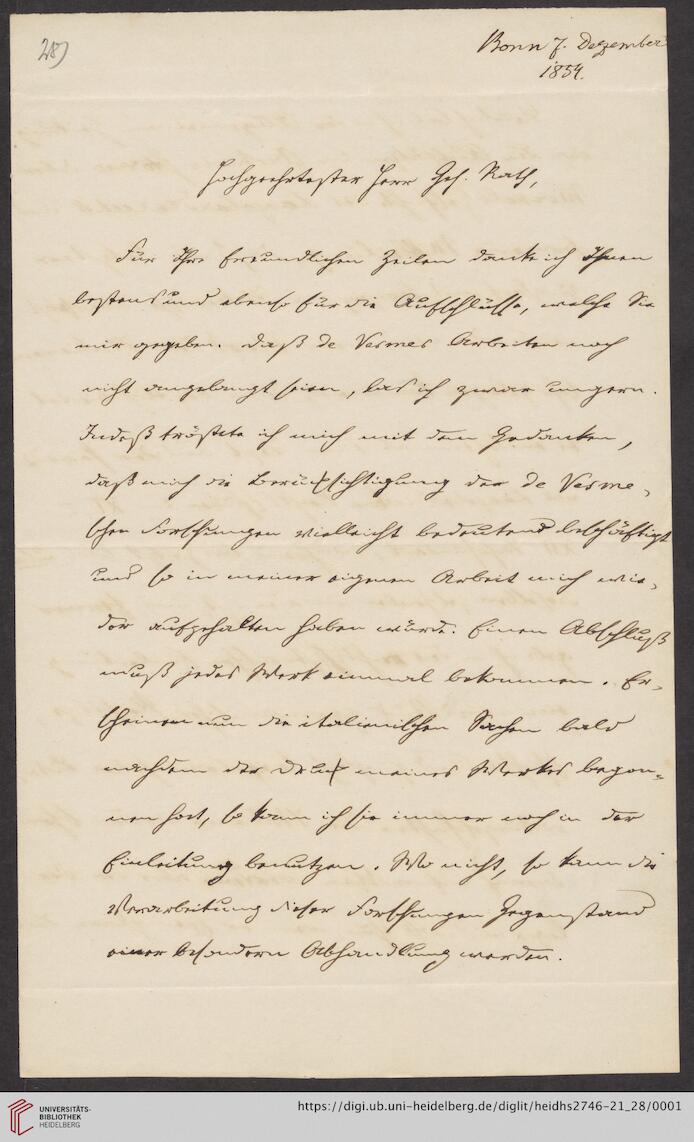 28)
Bonn 7. Dezember
1854.
Hochgeehrtester Herr Geh. Rath,
Für Ihre freundlichen Zeilen danke ich Ihnen
bestens und ebenso für die Aufschlüsse, welche Sie
mir gegeben. Daß de Vesmes Arbeiten noch
nicht angelangt seien, las ich zwar ungern.
Indeß tröstete ich mich mit dem Gedanken,
daß mich die Berücksichtigung der de Vesme-
schen Forschungen vielleicht bedeutend beschäftigt
und so in meiner eigenen Arbeit mich wie-
der aufgehalten haben würde. Einen Abschluß
muß jedes Werk einmal bekommen. Er-
scheinen nun die italienischen Sachen bald
nachdem der Druck meines Werkes begon-
nen hat, so kann ich sie immer noch in der
Einleitung benutzen. Wo nicht, so kann die
Verarbeitung dieser Forschungen Gegenstand
einer besondern Abhandlung werden.
UNIVERSITÄTS-
BIBLIOTHEK
HEIDELBERG
https://digi.ub.uni-heidelberg.de/diglit/heidhs2746-21_28/0001